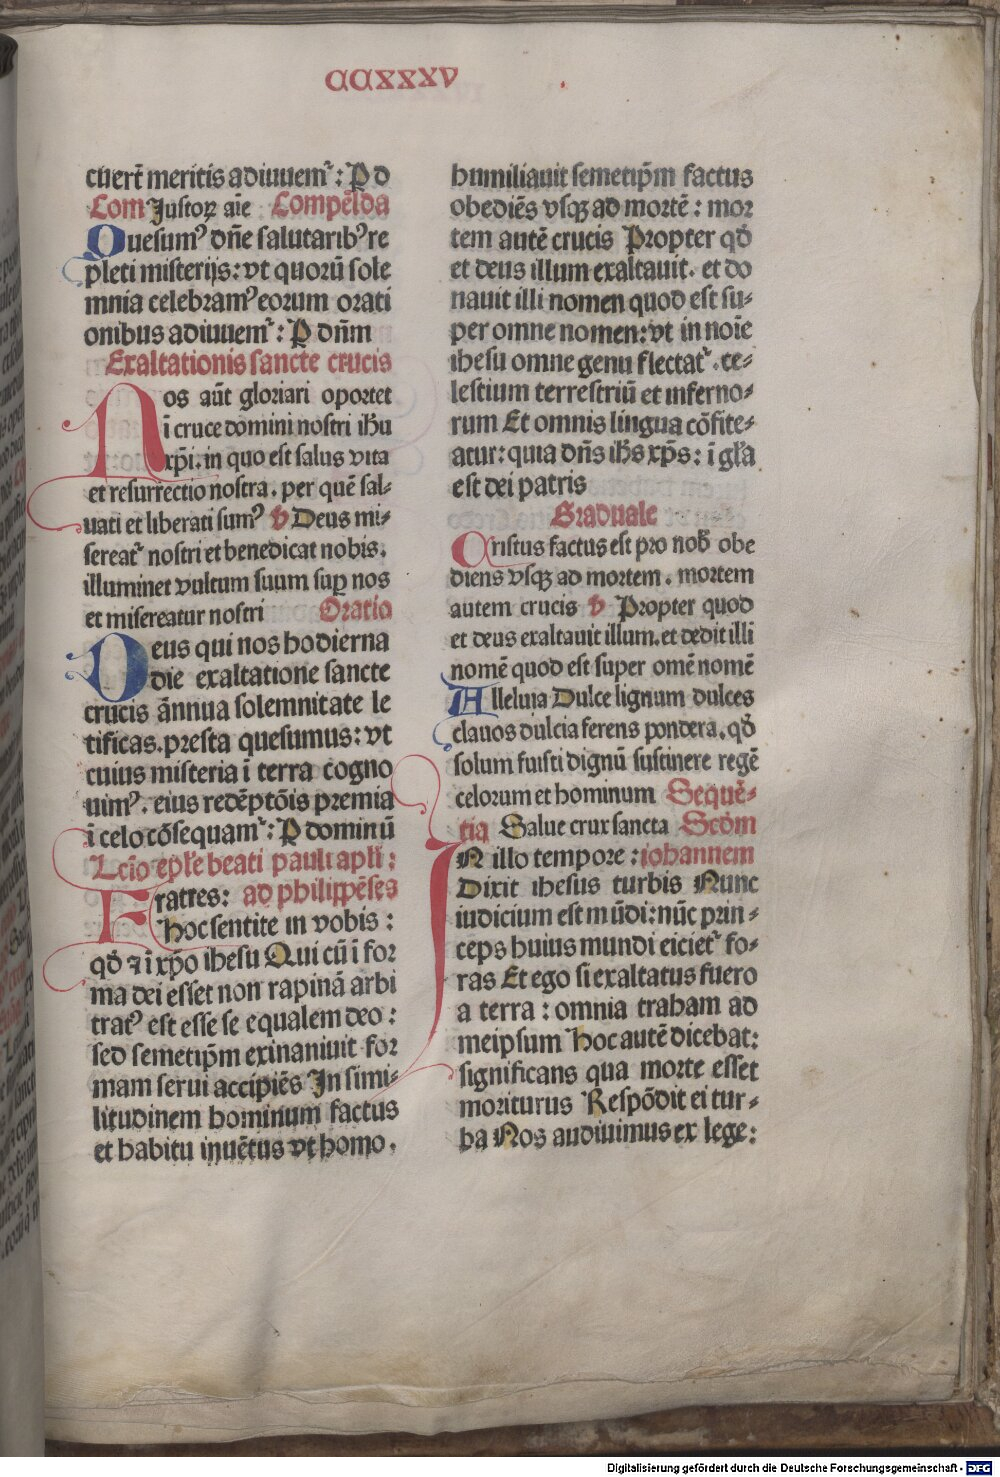 CCXXXV
cuert̄ meritis adiuuem᷑: P d
Com Justoꝝ aīe Complēda
Quesumꝰ dn̄e salutaribꝰ re
pleti misterijs: vt quorū sole
mnia celebramꝰ eorum orati
onibus adiuuem᷑: P dn̄m
Exaltationis sancte crucis
Nos aūt gloriari oportet
ī cruce domini nostri ih̄u
xp̄i. in quo est salus vita
et resurrectio nostra. per quē sal-
uati et liberati sumꝰ v Deus mi-
sereat᷑ nostri et benedicat nobis.
illuminet vultum suum suꝑ nos
et misereatur nostri Oratio
Deus qui nos hodierna
die exaltatione sancte
crucis ānnua solemnitate le
tificas. presta quesumus: vt
cuius misteria ī terra cogno
uimꝰ. eius redēptōis premia
ī celo cōsequam᷑: P dominū
Lcīo eplē beati pauli apl̄i:
Fratres: ad philippēses
Hoc sentite in vobis:
qd̄ ⁊ ī xp̄o ihesu Qui cū ī for
ma dei esset non rapinā arbi
tratꝰ est esse se equalem deo:
sed semetip̄m exinaniuit for
mam serui accipiēs In simi-
litudinem hominum factus
et habitu inuētus vt homo.
humiliauit semetip̄m factus
obediēs vsqꝫ ad mortē: mor
tem autē crucis Propter qd̄
et deus illum exaltauit. et do
nauit illi nomen quod est su-
per omne nomen: vt in noīe
ihesu omne genu flectat᷑. ce-
lestium terrestriū et inferno-
rum Et omnis lingua cōfite-
atur: quia dn̄s ih̄s xp̄s: ī gl̄a
est dei patris
Graduale
Cristus factus est pro nob̄ obe
diens vsqꝫ ad mortem. mortem
autem crucis v Propter quod
et deus exaltauit illum. et dedit illi
nomē quod est super omē nomē
Alleluia Dulce lignum dulces
clauos dulcia ferens pondera. qd̄
solum fuisti dignū sustinere regē
celorum et hominum Sequē-
tia Salue crux sancta Scdm
IN illo tempore: iohannem
Dixit ihesus turbis Nunc
iudicium est mūdi: nūc prin-
ceps huius mundi eiciet᷑ fo-
ras Et ego si exaltatus fuero
a terra: omnia traham ad
meipsum Hoc autē dicebat:
significans qua morte esset
moriturus Respōdit ei tur-
ba Nos audiuimus ex lege:
Digitalisierung gefördert durch die Deutsche Forschungsgemeinschaft - DFG